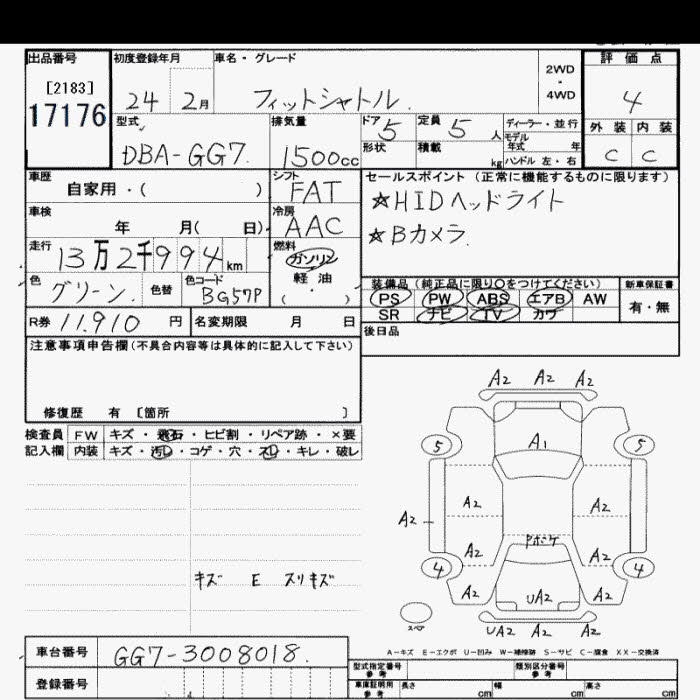 出品番号
[2183]
17176
初度登録年月
24 2月
車名・グレード
フィットシャトル
2WD
・
4WD
評価点
4
外装 内装
C C
型式
DBA-GG7
排気量
1500cc
ドア 5
形状
定員 5 人
積載 kg
ディーラー・並行
モデル
年式 年
ハンドル 左・右
車歴
自家用・( )
シフト
FAT
車検
年 月( 日)
冷房
AAC
走行
13万2千994km
燃料
ガソリン
軽油
( ・ )
色
グリーン
色替
色コード
BG57P
R券 11,910 円
名変期限 月 日
セールスポイント (正常に機能するものに限ります)
☆HIDヘッドライト
☆Bカメラ
装備品 (純正品に限り○をつけてください)
PS PW ABS エアB AW
SR ナビ TV カワ
新車保証書
有・無
後日品
注意事項申告欄(不具合内容等は具体的に記入して下さい)
修復歴 有 〔箇所 〕
検査員 FW キズ・飛石・ヒビ割・リペア跡・×要
記入欄 内装 キズ・汚れ・コゲ・穴・スレ・キレ・破レ
キズ E スリキズ
A2 A2 A2
5 5
A1
A2 A2
A2
Pホケ
A2 A2
4 4
A2 UA2 A2
スペア
UA2 A2 A2
A-キズ E-エクボ U-凹み W-補修跡 S-サビ C-腐食 XX-交換済
車台番号
GG7-3008018
登録番号
型式指定番号
参考
類別区分番号
参考
車庫証明用
参考
長さ cm 幅 cm 高さ cm